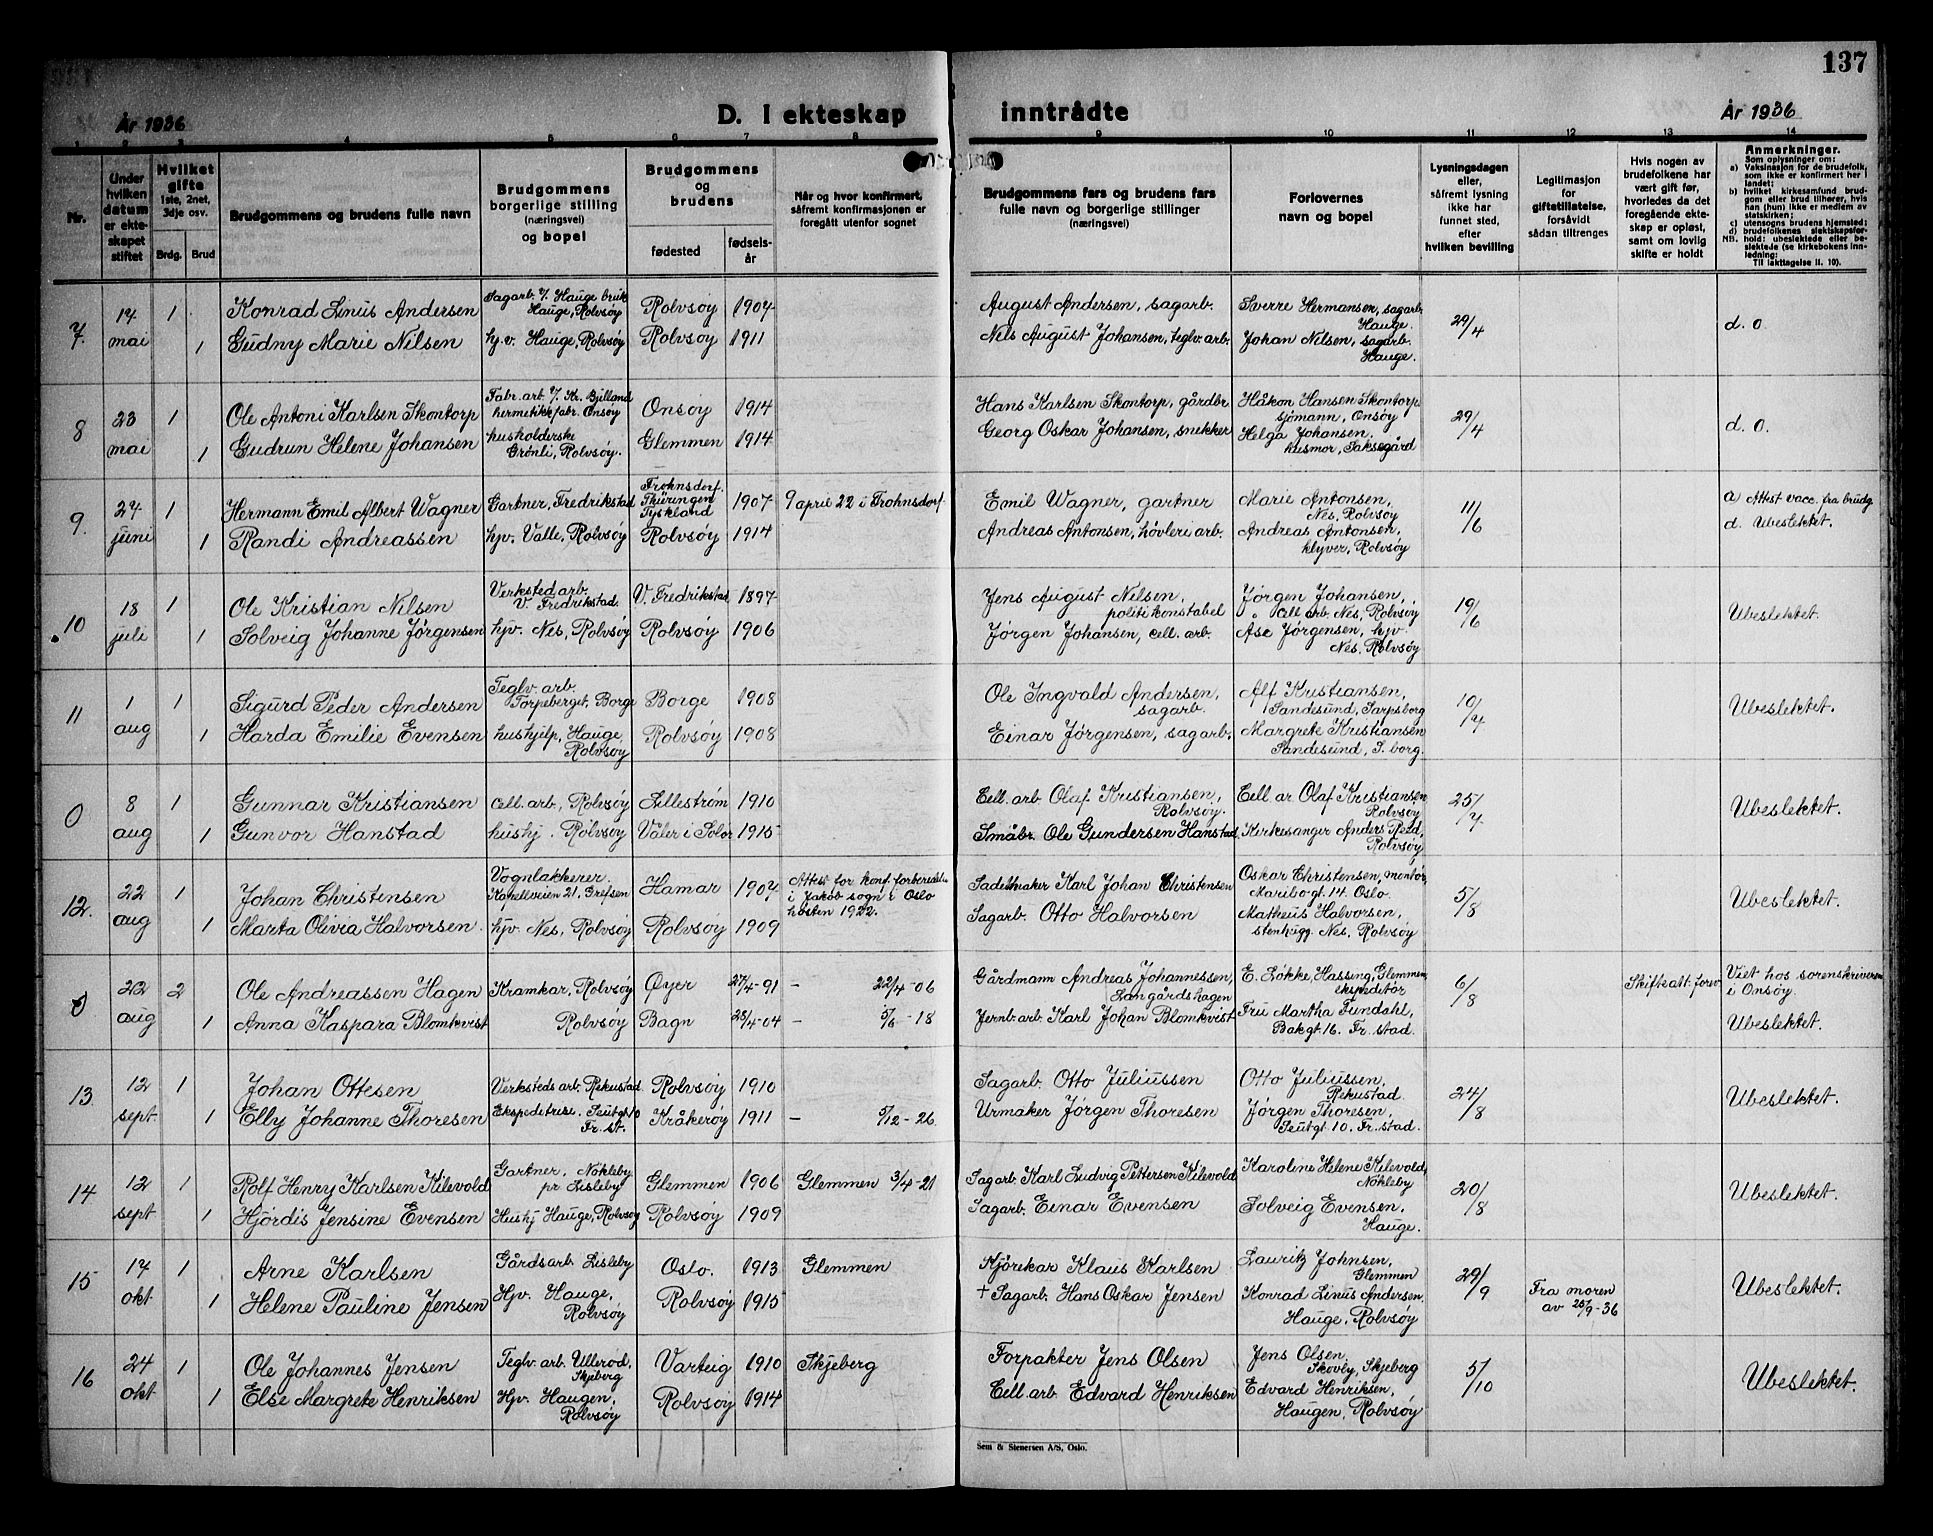 137
År 1936
D. I ekteskap inntrådte
År 1936
1 2 3 4 5 6 7 8 9 10 11 12 13 14
Nr.
Under hvilken datum er ekteskapet stiftet
Hvilket gifte 1ste, 2net, 3dje osv.
Brdg. Brud
Brudgommens og brudens fulle navn
Brudgommens borgerlige stilling (næringsvei) og bopel
Brudgommens og brudens
fødested
fødselsår
Når og hvor konfirmert, såfremt konfirmasjonen er foregått utenfor sognet
Brudgommens fars og brudens fars fulle navn og borgerlige stillinger (næringsvei)
Forlovernes navn og bopel
Lysningsdagen eller, såfremt lysning ikke har funnet sted, efter hvilken bevilling
Legitimasjon for giftetillatelse, forsåvidt sådan tiltrenges
Hvis nogen av brudefolkene har vært gift før, hvorledes da det foregående ekteskap er opløst, samt om lovlig skifte er holdt
Anmerkninger.
Som oplysninger om:
a) Vaksinasjon for de brudefolk, som ikke er konfirmert her i landet;
b) hvilket kirkesamfund brudgom eller brud tilhører, hvis han (hun) ikke er medlem av statskirken;
c) utensogns brudens hjemsted;
d) brudefolkenes slektskapsforhold: ubeslektede eller beslektede (se kirkebokens innledning:
NB. Til iakttagelse II. 10).
7. 14 mai 1 Konrad Linus Andersen Sagarb. v/ Hauge bruk Hauge, Rolvsøy Rolvsøy 1904 August Andersen, sagarb. Sverre Hermansen, sagarb. Hauge. 29/4 d. o.
1 Gudny Marie Nilsen hj.v. Hauge, Rolvsøy Rolvsøy 1911 Nils August Johansen, teglv. arb. Johan Nilsen, sagarb. Hauge.
8 23 mai 1 Ole Antoni Karlsen Skontorp Fabr. arb. v/ Kr. Bjelland hermetikkfabr. Onsøy Onsøy 1914 Hans Karlsen Skontorp, gårdbr. Håkon Hansen Skontorp sjømann, Onsøy 29/4 d. o.
1 Gudrun Helene Johansen husholderske Grønli, Rolvsøy. Glemmen 1914 Georg Oskar Johansen, snekker Helga Johansen, husmor, Saksegård
9. 27 juni 1 Hermann Emil Albert Wagner Gartner, Fredrikstad Frohnsdorf Thüringen Tyskland 1907 9 april 22 i Frohnsdorf Emil Wagner, gartner Marie Antonsen, Nes, Rolvsøy 11/6 a Attest vacc. fra brudg
1 Randi Andreassen hjv. Valle, Rolvsøy Rolvsøy 1914 Andreas Antonsen, høvleri arb. Andreas Antonsen, klyver, Rolvsøy d. Ubeslektet.
10 18 juli 1 Ole Kristian Nilsen Verksted arb. V. Fredrikstad. V. Fredrikstad 1897 Jens August Nilsen, politikonstabel Jørgen Johansen, cell. arb. Nes, Rolvsøy 19/6 Ubeslektet.
1 Solveig Johanne Jørgensen hjv. Nes, Rolvsøy Rolvsøy 1906 Jørgen Johansen, cell. arb. Åse Jørgensen, hjv. Nes, Rolvsøy
11 1 aug 1 Sigurd Peder Andersen Teglv. arb. Torpeberget, Borge Borge 1908 Ole Ingvald Andersen, sagarb. Alf Kristiansen, Sandesund, Sarpsborg 10/4 Ubeslektet.
1 Harda Emilie Evensen hushjelp, Hauge, Rolvsøy Rolvsøy 1908 Einar Jørgensen, sagarb. Margrete Kristiansen Sandesund, S. borg.
0 8 aug 1 Gunnar Kristiansen cell. arb, Rolvsøy Lillestrøm 1910 Cell. arb Olaf Kristiansen, Rolvsøy. Cell ar Olaf Kristiansen Rolvsøy 25/4 Ubeslektet.
1 Gunvor Hanstad hushj. Rolvsøy Våler i Solør 1915 Småbr. Ole Gundersen Hanstad Kirkesanger Anders Reid, Rolvsøy
12. 22 aug 1 Johan Christensen Vognlakkerer. Kapellveien 21, Grefsen Hamar 1904 Attest for konf. forberedelse i Jakob sogn i Oslo høsten 1922. Sadelmaker Karl Johan Christensen Oskar Christensen, montør, Maribogt. 14. Oslo. 5/8 Ubeslektet.
1 Marta Olivia Halvorsen. hjv. Nes, Rolvsøy Rolvsøy 1909 Sagarb. Otto Halvorsen Matheus Halvorsen, stenhugg. Nes, Rolvsøy
0 22 aug 2 Ole Andreassen Hagen Kramkar, Rolvsøy Øyer 27/4-91 – 22/4-06 Gårdmann Andreas Johannessen, Langårdshagen E. Løkke, Hassing, Glemmen ekspeditør 6/8 Skifteatt. forev. Viet hos sorenskriveren i Onsøy.
1 Anna Kaspara Blomkvist Rolvsøy Bagn 25/4-04 – 5/6-18 Jernb. arb. Karl Johan Blomkvist Fru Martha Fundahl, Bakgt. 16. Fr. stad. Ubeslektet.
13. 12 sept. 1 Johan Ottesen Verksteds arb. Rekustad Rolvsøy 1910 Sagarb. Otto Juliussen Otto Juliussen, Rekustad. 24/8 Ubeslektet.
1 Elly Johanne Thoresen Ekspeditrise. Seutgt 10 Fr. st. Kråkerøy 1911 – 5/12-26. Urmaker Jørgen Thoresen Jørgen Thoresen, Seutgt. 10. Fr. stad.
14 12 sept. 1 Rolf Henry Karlsen Kilevold Gartner, Nøkleby pr. Lisleby Glemmen 1906 Glemmen 3/4-21 Sagarb. Karl Ludvig Pettersen Kilevold Karoline Helene Kilevold, Nøkleby 20/8 Ubeslektet.
1 Hjørdis Jensine Evensen Hushj Hauge, Rolvsøy Rolvsøy 1909 Sagarb. Einar Evensen Solveig Evensen. Hauge.
15 17 okt 1 Arne Karlsen Gårdsarb. Lisleby Oslo. 1913 Glemmen Kjørekar Klaus Karlsen Lauritz Johnsen, Glemmen 29/9 Fra moren av 25/9-36 Ubeslektet.
1 Helene Pauline Jensen Hjv. Hauge, Rolvsøy Rolvsøy 1915 + Sagarb. Hans Oskar Jensen Konrad Linus Andersen. Hauge, Rolvsøy
16 24 okt 1 Ole Johannes Jensen Teglv. arb. Ullerød, Skjeberg Varteig 1910 Skjeberg Forpakter Jens Olsen Jens Olsen, Skovby, Skjeberg 5/10 Ubeslektet.
1 Else Margrete Henriksen Hjv. Haugen, Rolvsøy Rolvsøy 1914 Cell. arb. Edvard Henriksen Edvard Henriksen, Haugen, Rolvsøy
Sem & Stenersen A/S, Oslo.